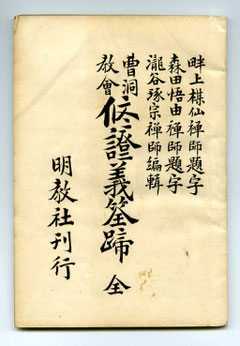 畔上楳仙禅師題字
森田悟由禅師題字
瀧谷琢宗禅師編輯
曹洞教會修證義筌蹄 全
明教社刊行